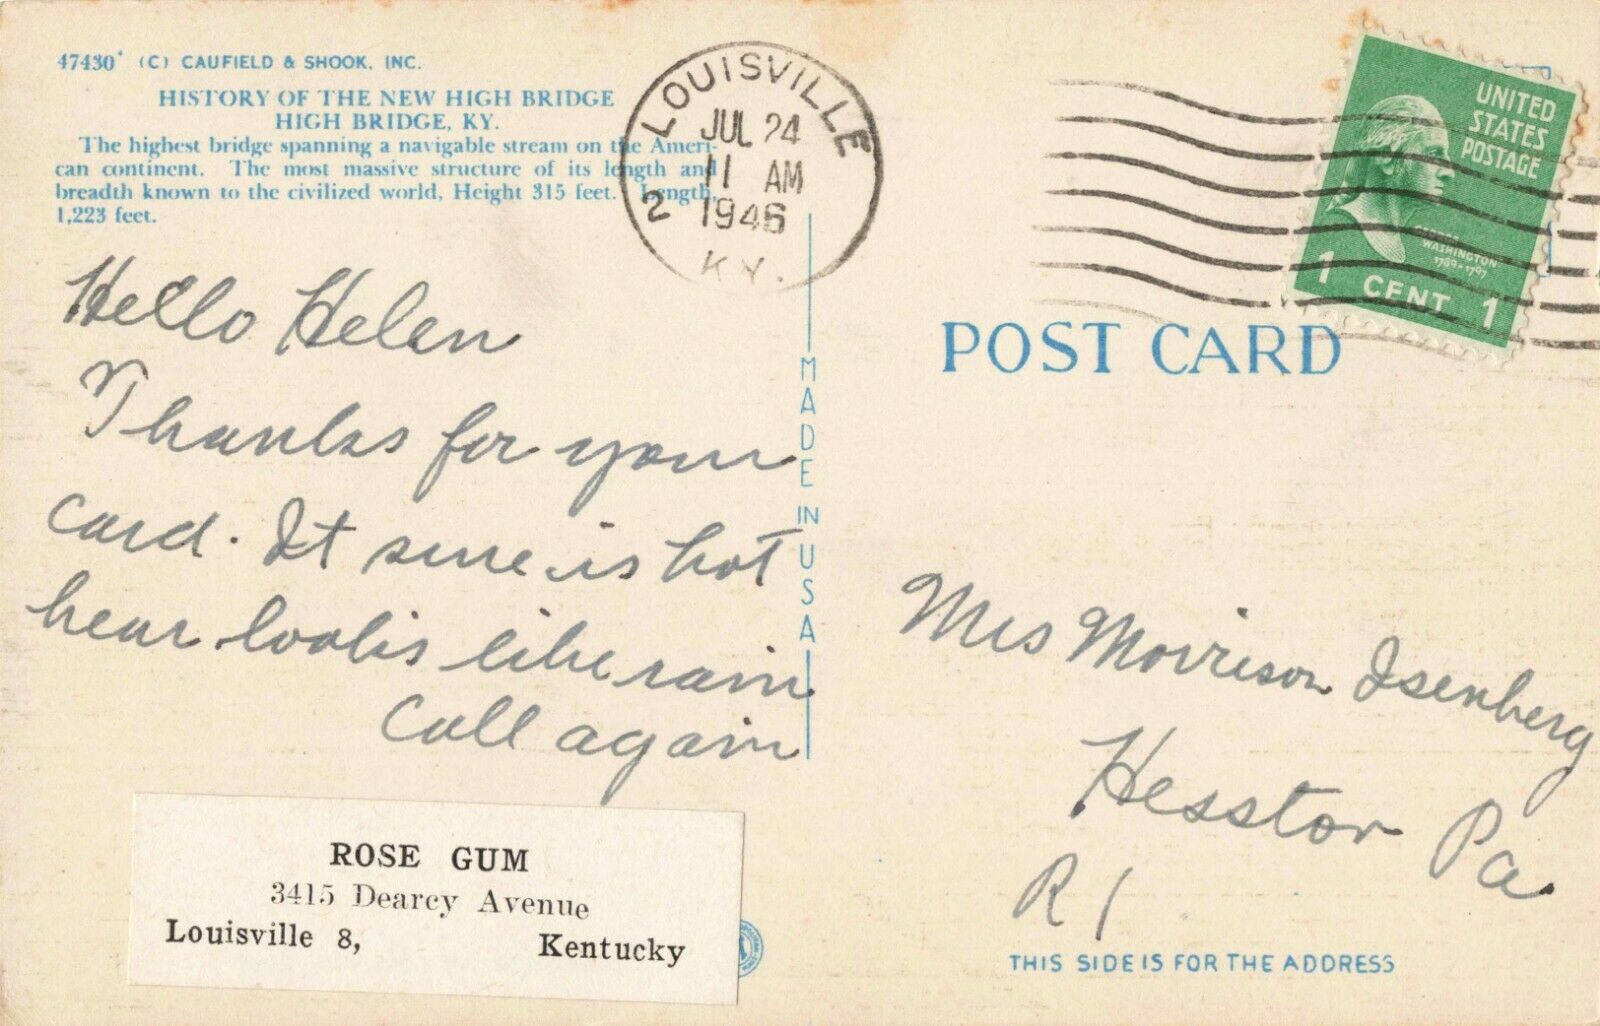 47430 (C) CAUFIELD & SHOOK, INC.
HISTORY OF THE NEW HIGH BRIDGE
HIGH BRIDGE, KY.
The highest bridge spanning a navigable stream on the Ameri-
can continent. The most massive structure of its length and
breadth known to the civilized world, Height 315 feet. Length,
1,223 feet.
LOUISVILLE 2
JUL 24
11 AM
1946
KY.
UNITED
STATES
POSTAGE
GEORGE
WASHINGTON
1789-1797
1 CENT 1
POST CARD
MADE IN USA
Hello Helen
Thanks for your
card. It sure is hot
hear looks like rain
Call again
Mrs Morrison Isenberg
Hesston Pa
R 1
ROSE GUM
3415 Dearcy Avenue
Louisville 8, Kentucky
THIS SIDE IS FOR THE ADDRESS